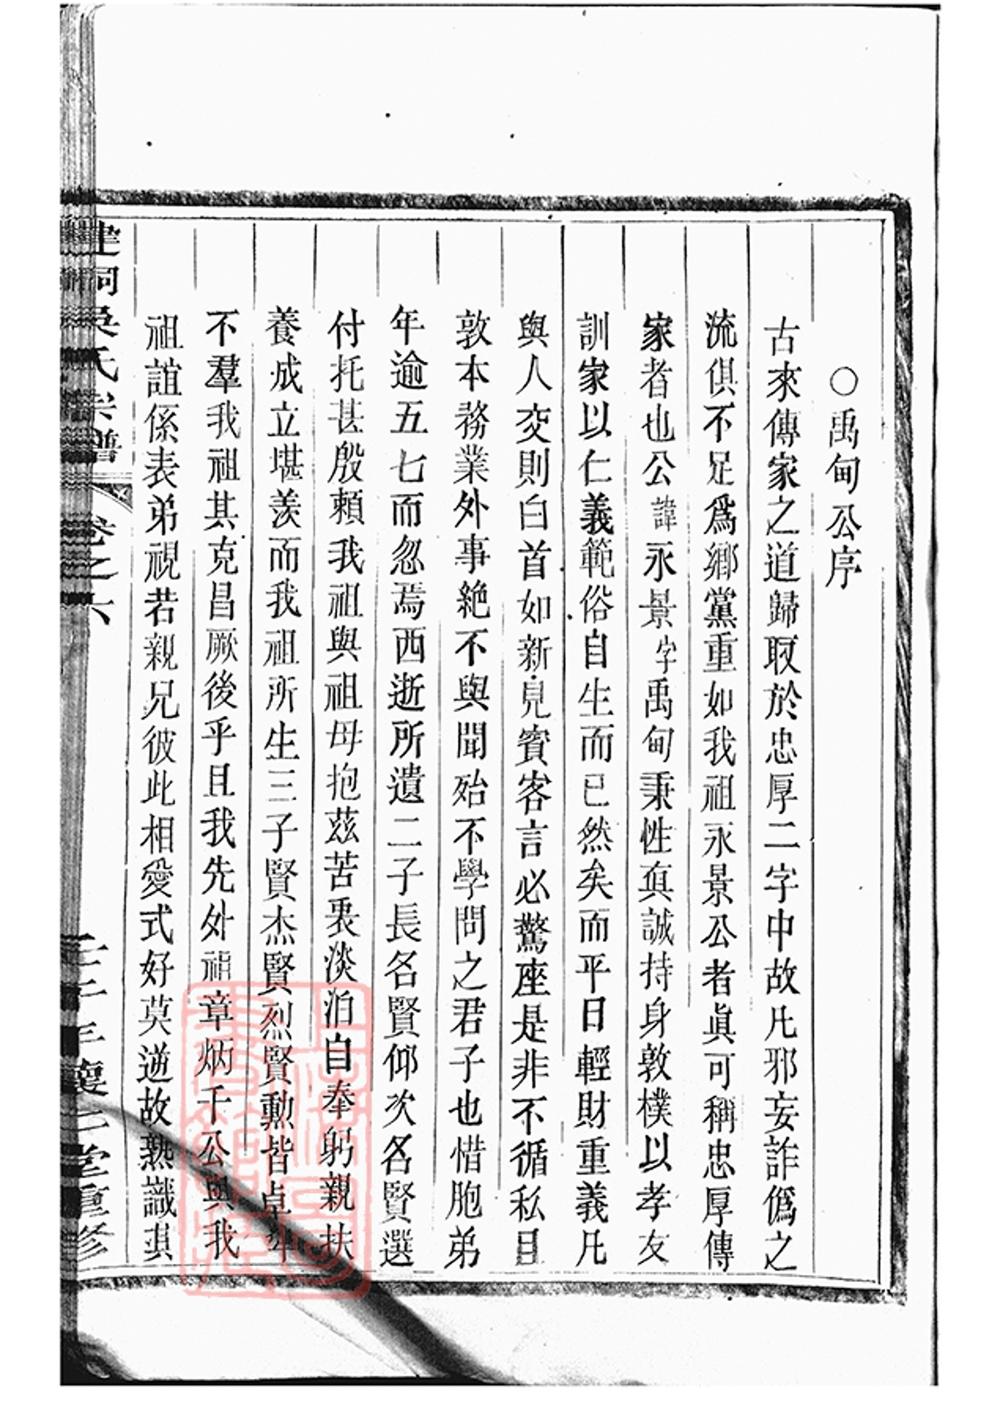 ○禹甸公序
古來傳家之道歸取於忠厚二字中故凡邪妄詐僞之
流俱不足爲鄉黨重如我祖永景公者眞可稱忠厚傳
家者也公諱永景字禹甸秉性眞誠持身敦樸以孝友
訓家以仁義範俗自生而已然矣而平日輕財重義凡
與人交則白首如新見賓客言必驚座是非不循私且
敦本務業外事絶不與聞殆不學問之君子也惜胞弟
年逾五七而忽焉西逝所遺二子長名賢仰次名賢選
付托甚殷賴我祖與祖母抱茲苦衷淡泊自奉躬親扶
養成立堪羨而我祖所生三子賢杰賢烈賢勳皆卓犖
不羣我祖其克昌厥後乎且我先外祖章炳千公與我
祖誼係表弟視若親兄彼此相愛式好莫逆故熟識其
建洞吳氏宗譜
卷之六
壬子年 堂重修